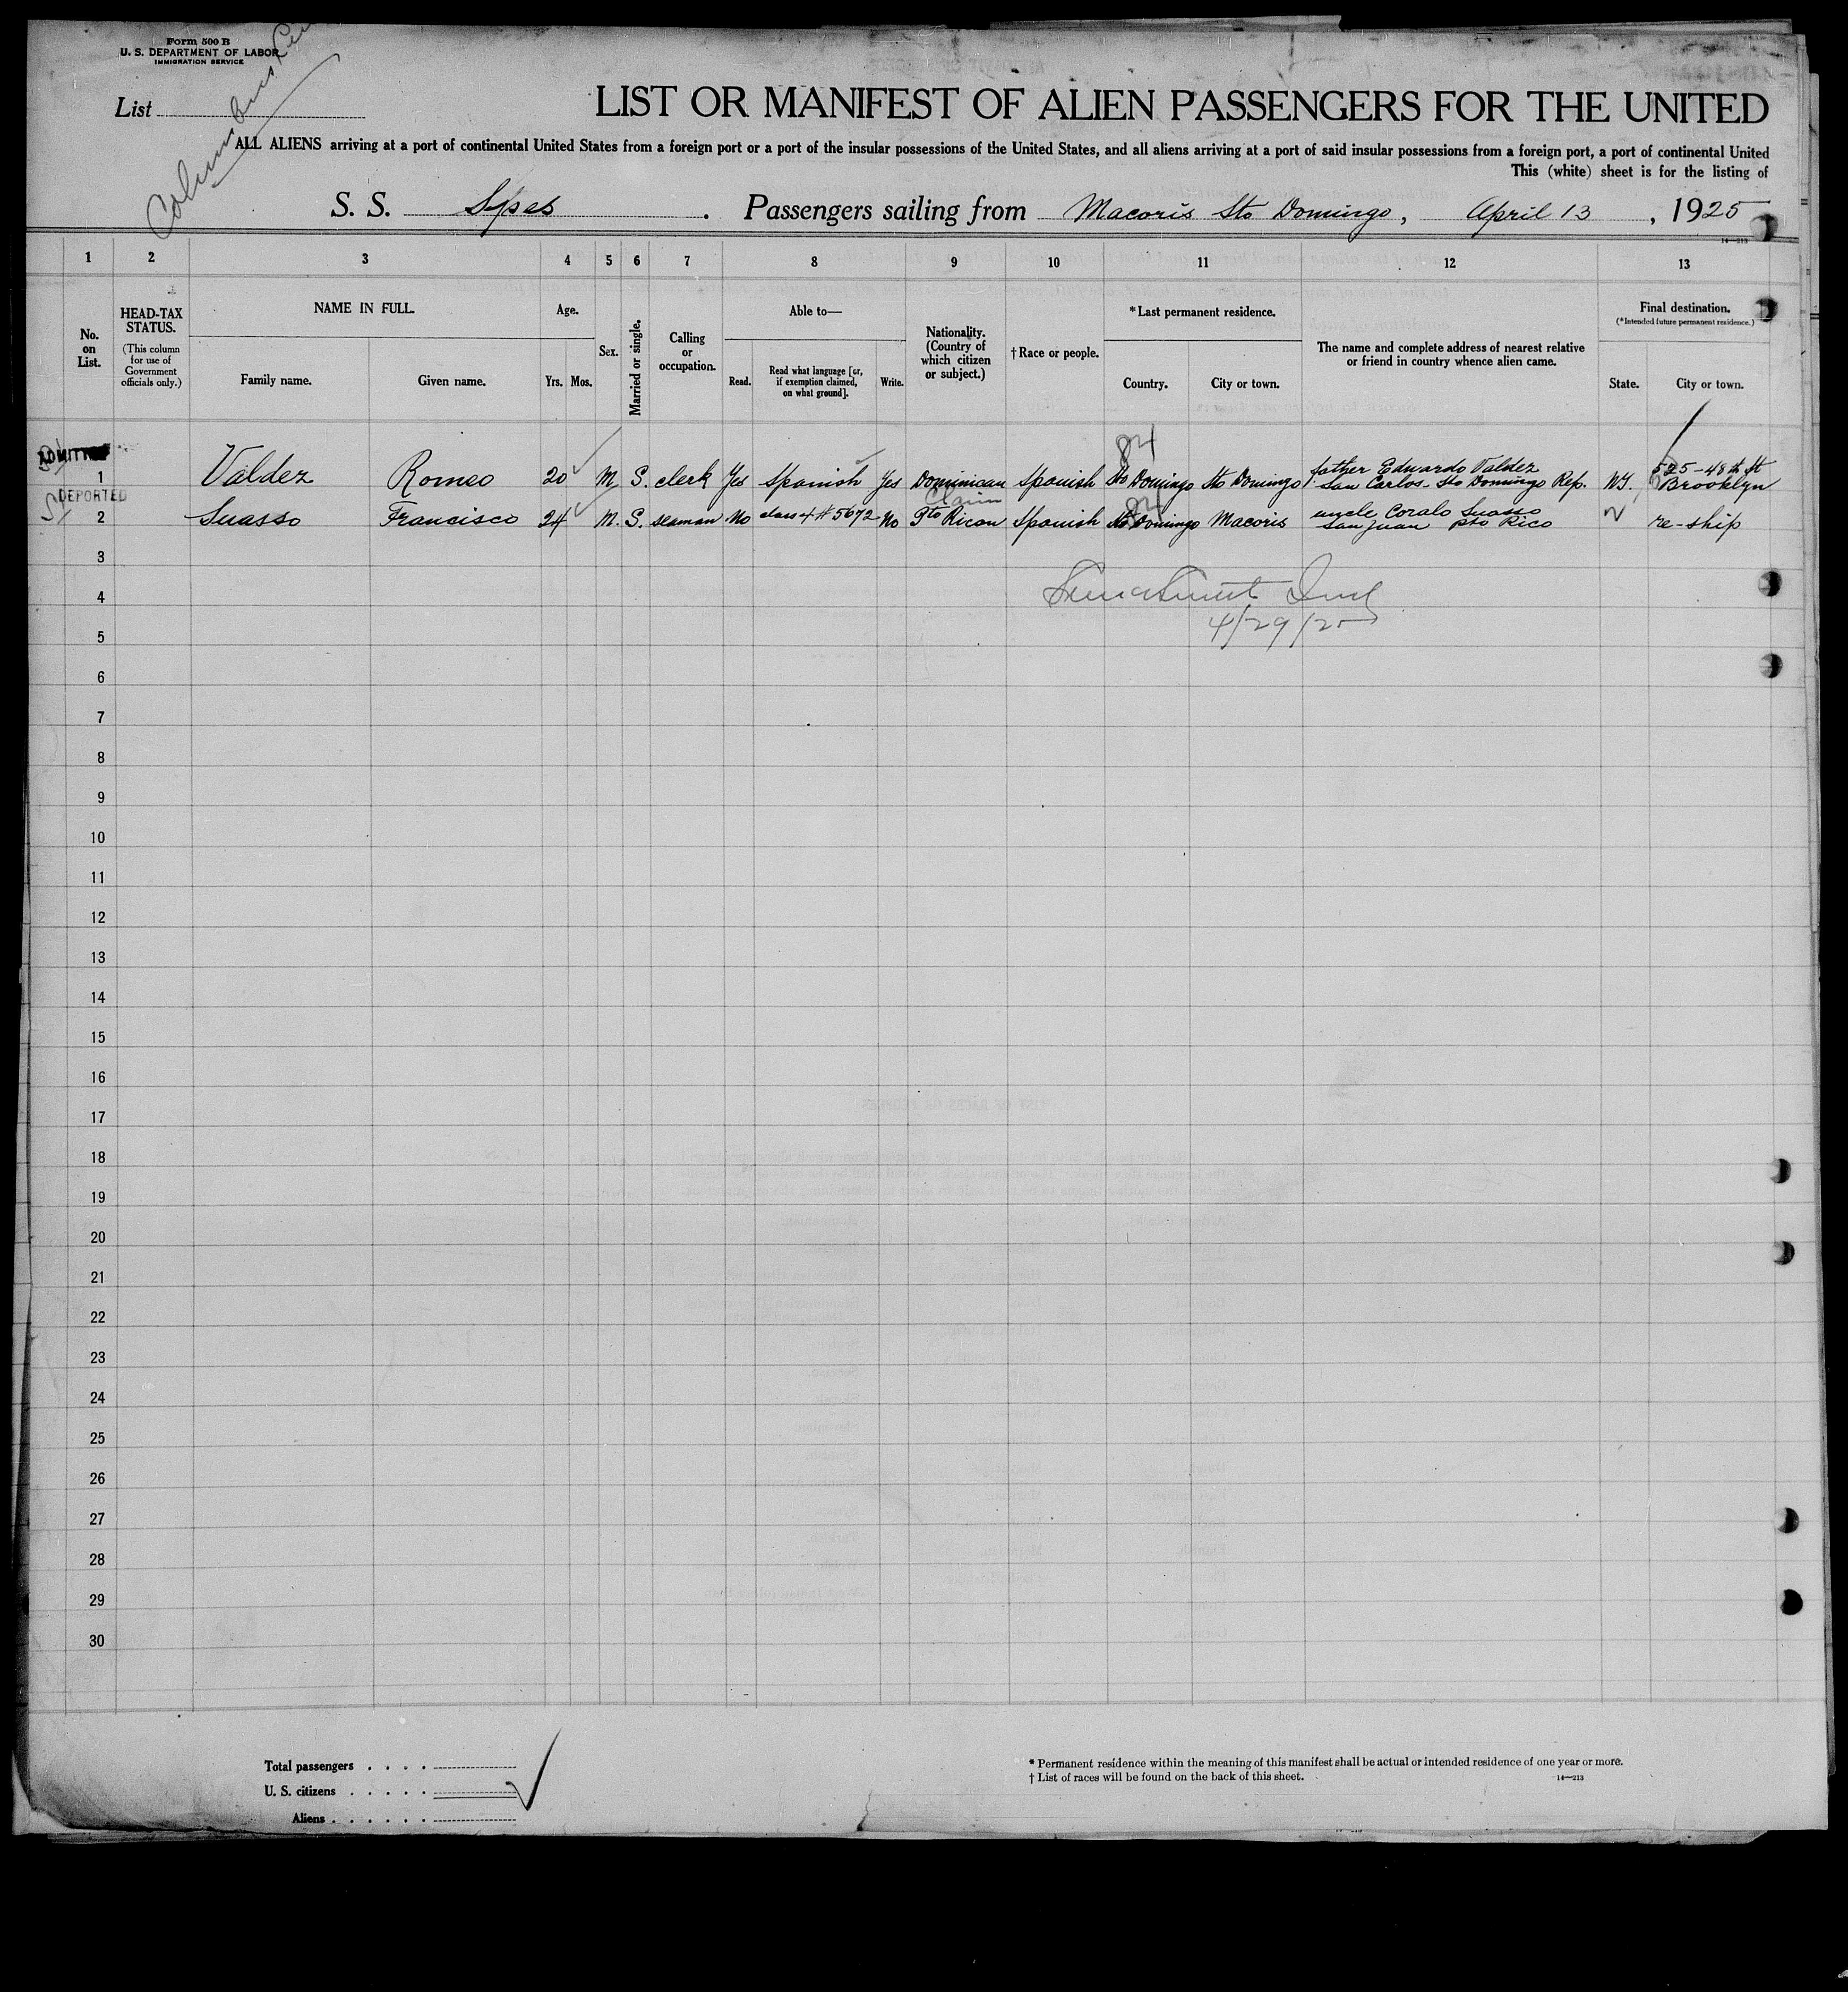 Form 500 B
U. S. DEPARTMENT OF LABOR
IMMIGRATION SERVICE
Columbus
List
LIST OR MANIFEST OF ALIEN PASSENGERS FOR THE UNITED
ALL ALIENS arriving at a port of continental United States from a foreign port or a port of the insular possessions of the United States, and all aliens arriving at a port of said insular possessions from a foreign port, a port of continental United
This (white) sheet is for the listing of
S. S. Spes. Passengers sailing from Macoris Sto Domingo, April 13, 1925
14—213
1 2 3 4 5 6 7 8 9 10 11 12 13
No. on List.
HEAD-TAX STATUS.
(This column for use of Government officials only.)
NAME IN FULL.
Family name. Given name.
Age.
Yrs. Mos.
Sex.
Married or single.
Calling or occupation.
Able to—
Read. Read what language [or, if exemption claimed, on what ground]. Write.
Nationality. (Country of which citizen or subject.)
†Race or people.
*Last permanent residence.
Country. City or town.
The name and complete address of nearest relative or friend in country whence alien came.
Final destination.
(*Intended future permanent residence.)
State. City or town.
ADMITTED
84
1 Valdez Romeo 20 M S. clerk Yes Spanish Yes Dominican Spanish Sto Domingo Sto Domingo father Eduardo Valdez San Carlos Sto Domingo Rep. NY. 525-48th St Brooklyn
DEPORTED
Claim
84
2 Suasso Francisco 24 M. S. seaman No class 4 #5672 No Pto Rican Spanish Sto Domingo Macoris uncle Coralo Suasso San Juan Pto Rico re-ship
3
4
4/29/25
5
6
7
8
9
10
11
12
13
14
15
16
17
18
19
20
21
22
23
24
25
26
27
28
29
30
Total passengers . . . .
U. S. citizens . . . . .
Aliens . . . . . .
* Permanent residence within the meaning of this manifest shall be actual or intended residence of one year or more.
† List of races will be found on the back of this sheet.
14—213